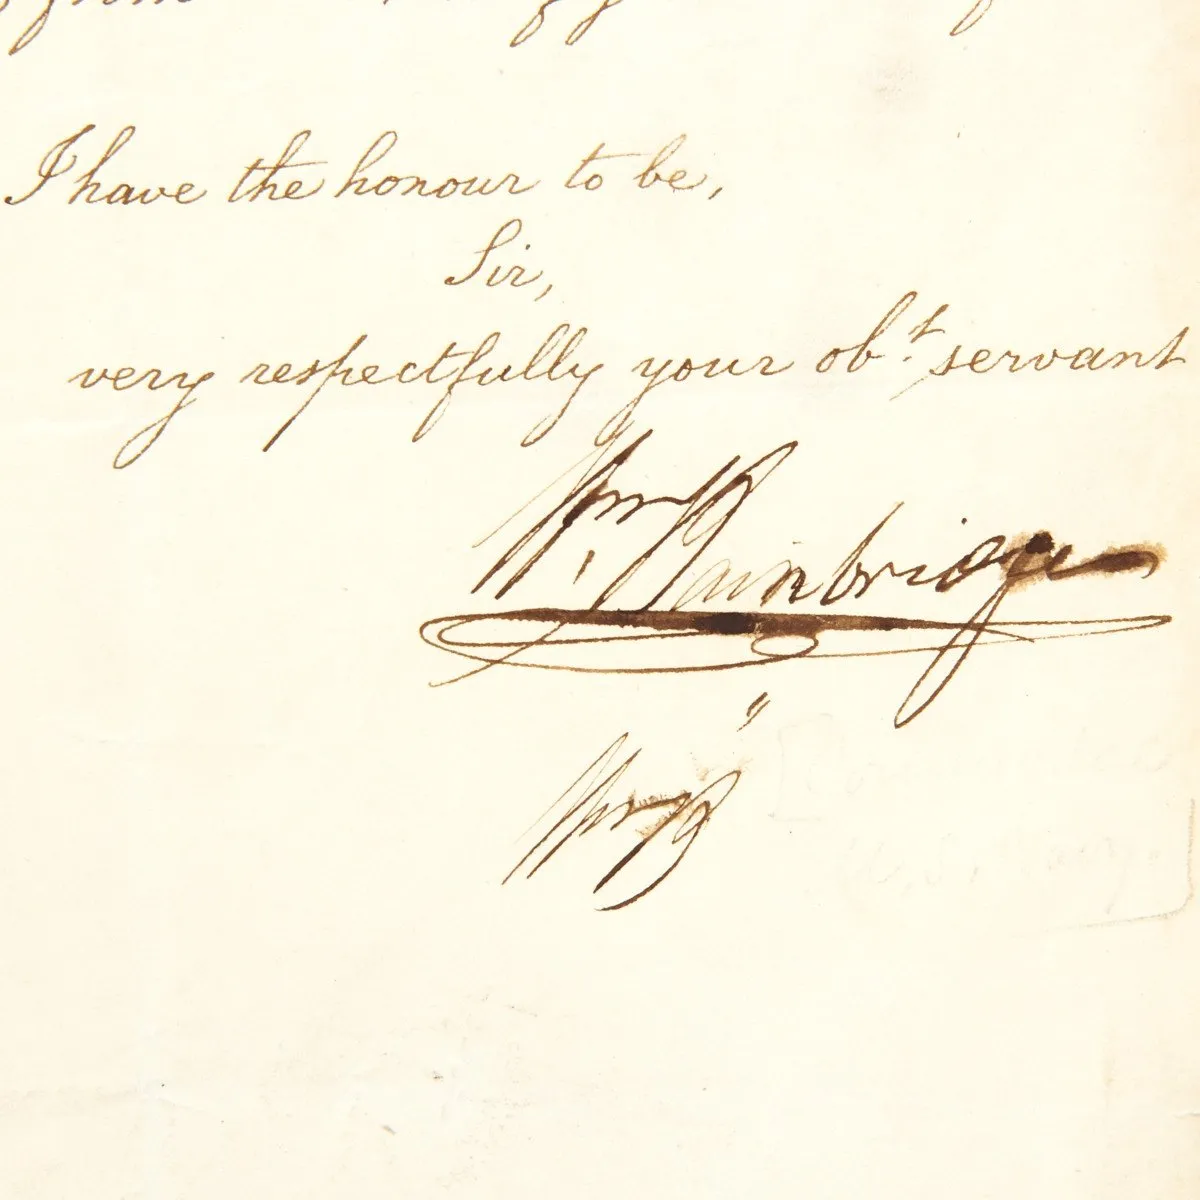 from
I have the honour to be,
Sir,
very respectfully your obt. servant
Wm. Bainbridge
"
Wm B